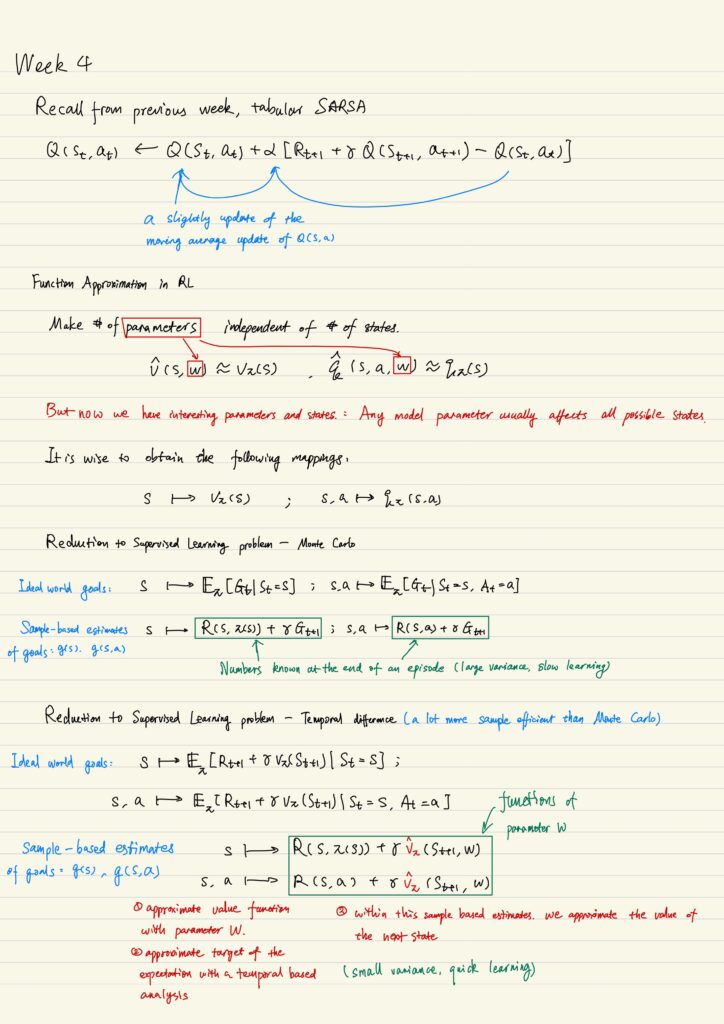 Week 4
Recall from previous week, tabular SARSA
Q(St, at) ← Q(St, at) + α [Rt+1 + γ Q(St+1, at+1) − Q(St, at)]
a slightly update of the
moving average update of Q(S,a)
Function Approximation in RL
Make # of parameters independent of # of states.
v̂(s, w) ≈ vπ(s) , q̂(s, a, w) ≈ qπ(s)
But now we have interesting parameters and states.: Any model parameter usually affects all possible states.
It is wise to obtain the following mappings.
s ↦ vπ(s) ; s,a ↦ qπ(s,a)
Reduction to Supervised Learning problem — Monte Carlo
Ideal world goals: s ↦ 𝔼π[Gt|St=s] ; s,a ↦ 𝔼π[Gt|St=s, At=a]
Sample-based estimates s ↦ R(s, π(s)) + γ Gt+1 ; s,a ↦ R(s,a) + γ Gt+1
of goals: g(s), g(s,a)
Numbers known at the end of an episode (large variance, slow learning)
Reduction to Supervised Learning problem — Temporal difference (a lot more sample efficient than Monte Carlo)
Ideal world goals: s ↦ 𝔼π[Rt+1 + γ vπ(St+1) | St = s] ;
s, a ↦ 𝔼π[Rt+1 + γ vπ(St+1) | St = s, At = a]
functions of
parameter W
Sample-based estimates s ↦ R(s, π(s)) + γ v̂π(St+1, w)
of goals: g(s), g(s,a) s, a ↦ R(s,a) + γ v̂π(St+1, w)
① approximate value function
with parameter W.
② approximate target of the
expectation with a temporal based
analysis
③ within this sample based estimates. we approximate the value of
the next state
(small variance, quick learning)